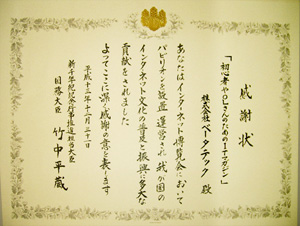 感謝状
「初心者やOLさんのためのITマガジン」
株式会社ベータテック 殿
あなたはインターネット博覧会において
パビリオンを設置運営され 我が国の
インターネット文化の普及と振興に多大な
貢献をされました
よってここに深く感謝の意を表します
平成十三年十二月三十一日
新千年紀記念行事担当大臣
国務大臣 竹中平蔵